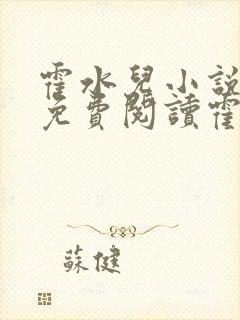 霍水兒小說
免費閱讀霍
蘇健